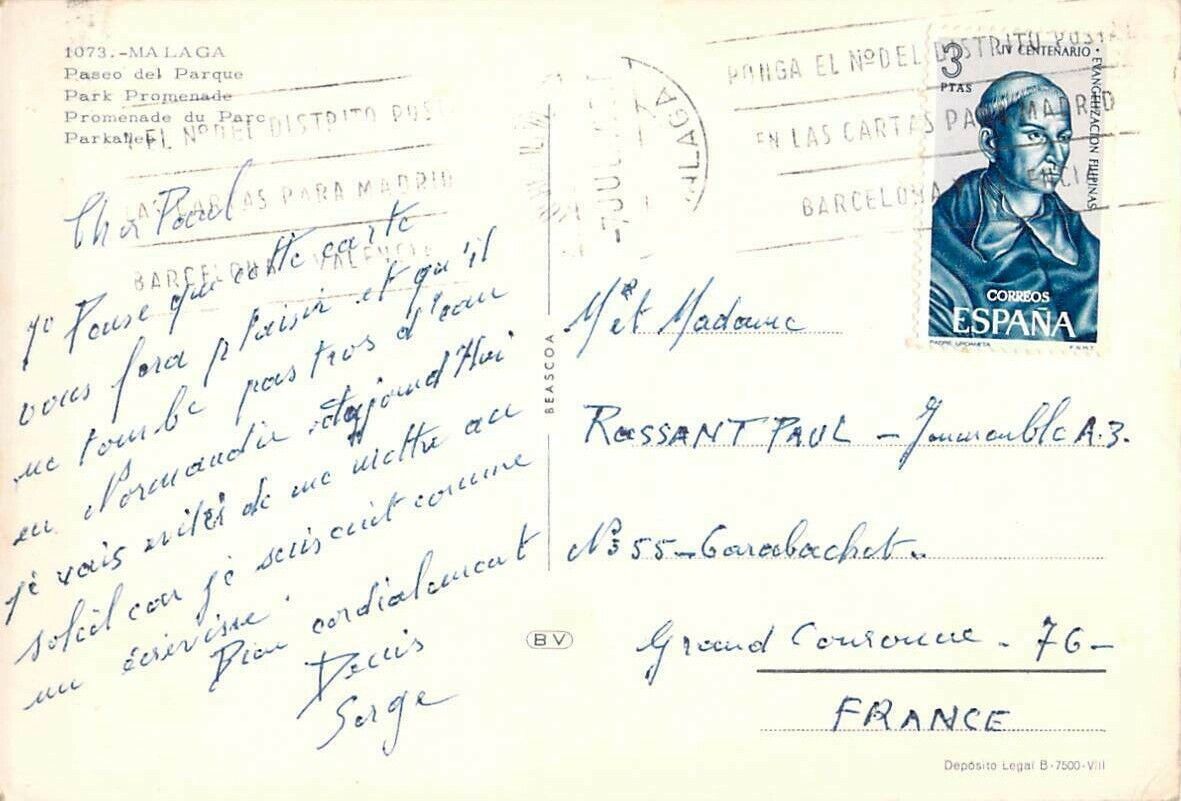 1073.-MALAGA
Paseo del Parque
Park Promenade
Promenade du Parc
Parkallee
Nº DEL DISTRITO POST
CARTAS PARA MADRID
BARCELONA VALENCIA
Cher Paul
Je Pense que cette carte
vous fera plaisir et qu'il
ne tombe pas trop d'eau
en Normandie. Aujourd'Hui
je vais éviter de me mettre au
soleil car je suis cuit comme
un écrevisse.
Bien cordialement
Denis
Serge
BEASCOA
BV
7 JUL
MALAGA
PONGA EL Nº DEL DISTRITO POSTAL
EN LAS CARTAS PARA MADRID
BARCELONA Y VALENCIA
3 PTAS
IV CENTENARIO · EVANGELIZACION FILIPINAS
CORREOS
ESPAÑA
PADRE URDANETA
F.N.M.T.
Mr et Madame
ROSSANT PAUL - Immeuble A.3.
N° 55 -
Grand Couronne - 76 -
FRANCE
Depósito Legal B-7500-VIII